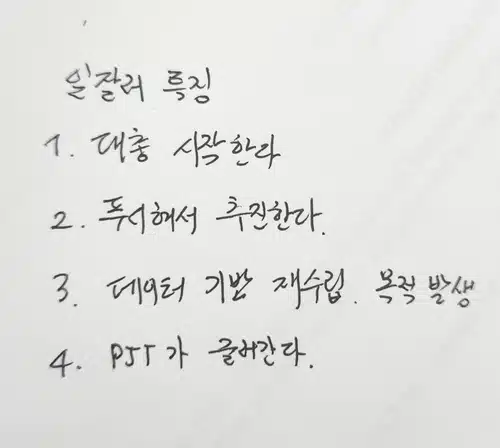 일잘러 특징
1. 대충 시작한다
2. 푸시해서 추진한다.
3. 데이터 기반 재수립. 목적 발생
4. PJT가 굴러간다.